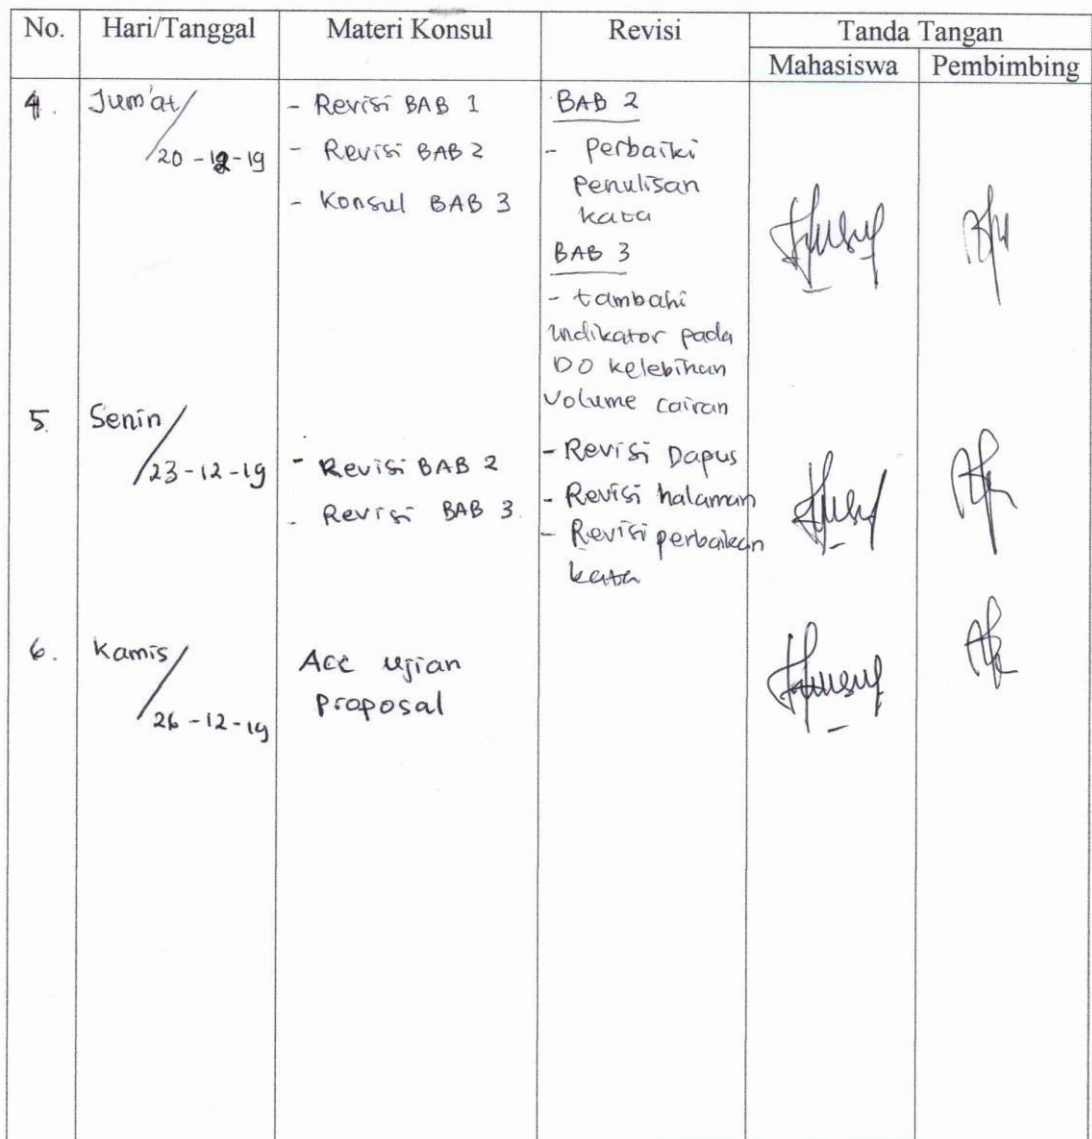 No. Hari/Tanggal Materi Konsul Revisi Tanda Tangan
Mahasiswa Pembimbing
4. Jum'at/ 20-12-19
- Revisi BAB 1
- Revisi BAB 2
- Konsul BAB 3
BAB 2
- Perbaiki
Penulisan
kata
BAB 3
- tambahi
indikator pada
DO kelebihan
volume cairan
5. Senin/ 23-12-19
- Revisi BAB 2
- Revisi BAB 3.
- Revisi Dapus
- Revisi halaman
- Revisi perbaikan
kata
6. Kamis/ 26-12-19
Acc ujian
proposal